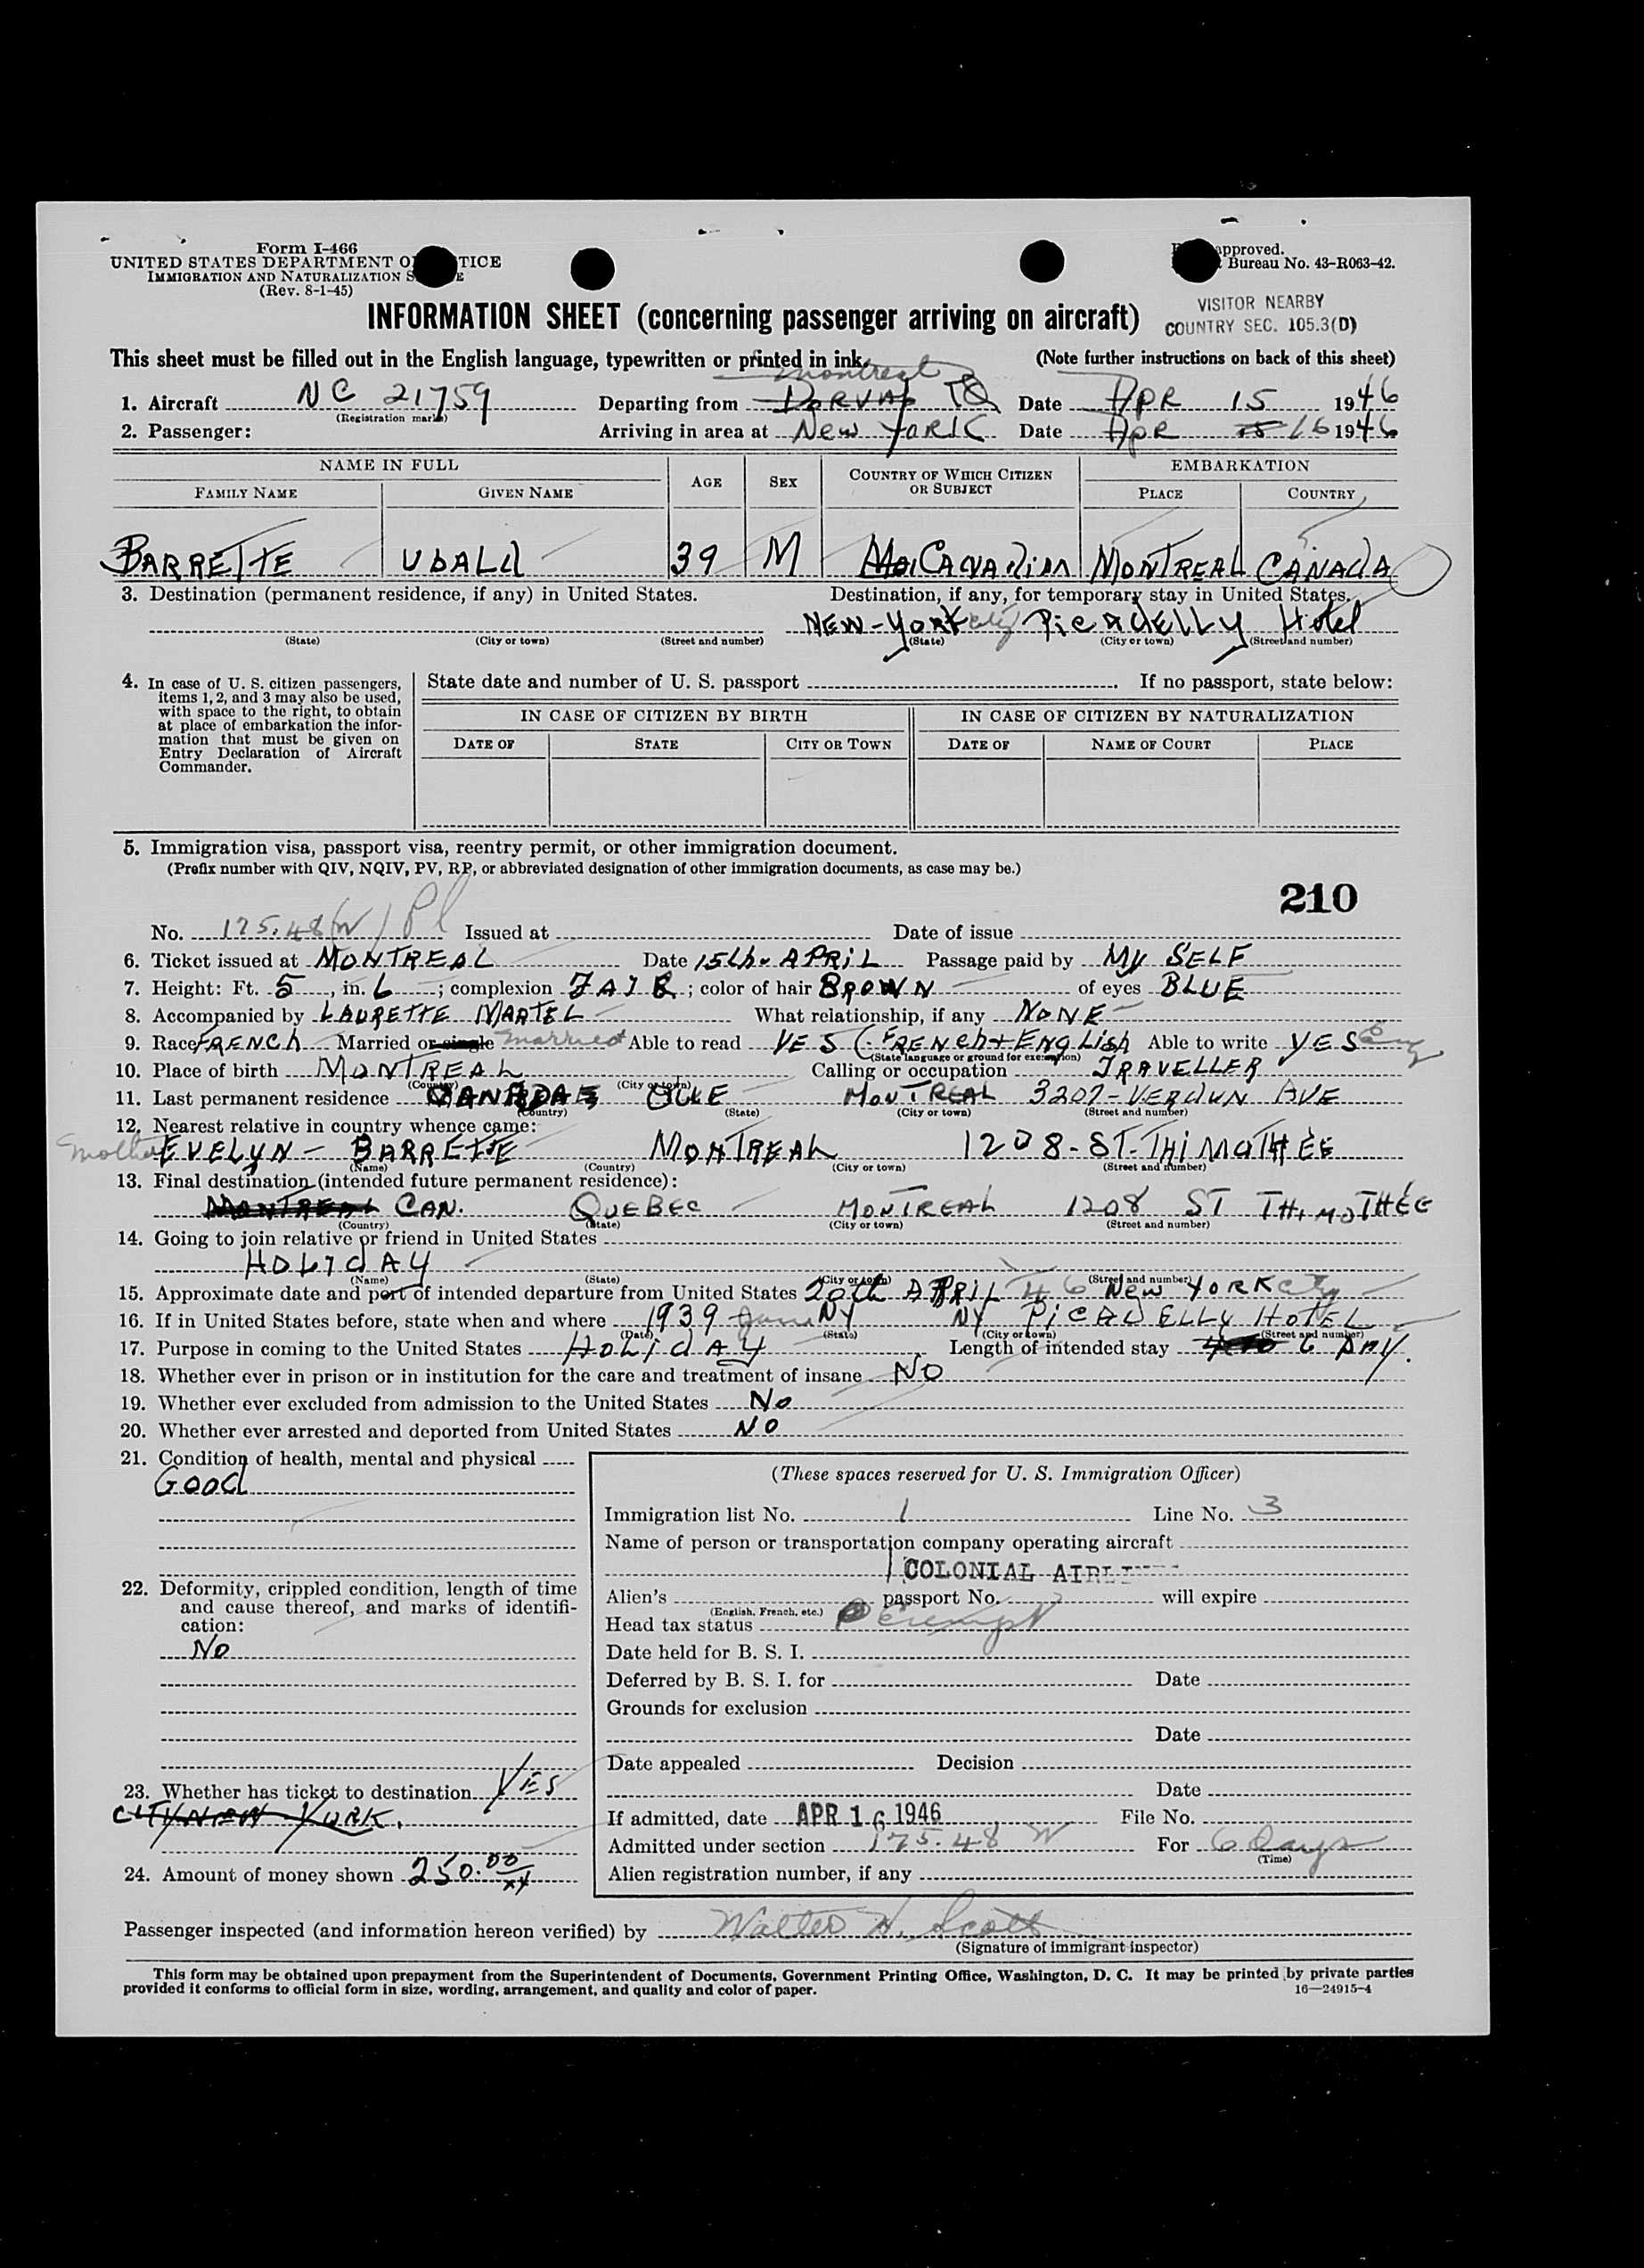 Form I-466
UNITED STATES DEPARTMENT O TICE
IMMIGRATION AND NATURALIZATION S E
(Rev. 8-1-45)
approved.
Bureau No. 43-R063-42.
INFORMATION SHEET (concerning passenger arriving on aircraft)
VISITOR NEARBY
COUNTRY SEC. 105.3(D)
This sheet must be filled out in the English language, typewritten or printed in ink.
(Note further instructions on back of this sheet)
Montreal
1. Aircraft NC 21759 Departing from DORVAL PQ Date APR 15 1946
(Registration marks)
2. Passenger: Arriving in area at New YORK Date APR 15 16 1946
NAME IN FULL
FAMILY NAME GIVEN NAME AGE SEX COUNTRY OF WHICH CITIZEN OR SUBJECT EMBARKATION PLACE COUNTRY
BARRETTE UBALD 39 M CANADIAN MONTREAL CANADA
3. Destination (permanent residence, if any) in United States. Destination, if any, for temporary stay in United States.
NEW-YORK city PiCADELLY Hotel
(State) (City or town) (Street and number) (State) (City or town) (Street and number)
4. In case of U. S. citizen passengers, items 1, 2, and 3 may also be used, with space to the right, to obtain at place of embarkation the information that must be given on Entry Declaration of Aircraft Commander.
State date and number of U. S. passport . If no passport, state below:
IN CASE OF CITIZEN BY BIRTH IN CASE OF CITIZEN BY NATURALIZATION
DATE OF STATE CITY OR TOWN DATE OF NAME OF COURT PLACE
5. Immigration visa, passport visa, reentry permit, or other immigration document.
(Prefix number with QIV, NQIV, PV, RP, or abbreviated designation of other immigration documents, as case may be.)
210
No. 175.48(W) Pl Issued at Date of issue
6. Ticket issued at MONTREAL Date 15th-APRiL Passage paid by My SELF
7. Height: Ft. 5, in. 6; complexion FAIR; color of hair BROWN of eyes BLUE
8. Accompanied by LAURETTE MARTEL What relationship, if any NONE
9. Race FRENCh Married or single married Able to read YES (FRENCh+ENGLish Able to write YES Eng
(State language or ground for exemption)
10. Place of birth MONTREAL Calling or occupation TRAVELLER
(Country) (City or town)
11. Last permanent residence CANADA QUE MONTREAL 3207-VERDUN AVE
(Country) (State) (City or town) (Street and number)
12. Nearest relative in country whence came:
mother EVELYN - BARRETTE MONTREAL 1208-ST-THiMOTHÉE
(Name) (Country) (City or town) (Street and number)
13. Final destination (intended future permanent residence):
MONTREAL CAN. QUEBEC MONTREAL 1208 ST THiMOTHÉE
(Country) (State) (City or town) (Street and number)
14. Going to join relative or friend in United States
HOLIdAY
(Name) (State) (City or town) (Street and number)
15. Approximate date and port of intended departure from United States 20th APRiL 46 New YORK City
16. If in United States before, state when and where 1939 June NY NY PiCADELLY HOTEL
(Date) (State) (City or town) (Street and number)
17. Purpose in coming to the United States HOLidAY Length of intended stay 6 DAY.
18. Whether ever in prison or in institution for the care and treatment of insane NO
19. Whether ever excluded from admission to the United States No
20. Whether ever arrested and deported from United States NO
21. Condition of health, mental and physical
GOOd
22. Deformity, crippled condition, length of time and cause thereof, and marks of identification:
NO
23. Whether has ticket to destination YES
CITY NEW YORK.
24. Amount of money shown 250.00
(These spaces reserved for U. S. Immigration Officer)
Immigration list No. 1 Line No. 3
Name of person or transportation company operating aircraft
COLONIAL AIRLI
Alien's passport No. will expire
(English, French, etc.)
Head tax status exempt
Date held for B. S. I.
Deferred by B. S. I. for Date
Grounds for exclusion
Date
Date appealed Decision
Date
If admitted, date APR 16 1946 File No.
Admitted under section 175.48 W For 6 days
(Time)
Alien registration number, if any
Passenger inspected (and information hereon verified) by Walter H. Scott
(Signature of immigrant inspector)
This form may be obtained upon prepayment from the Superintendent of Documents, Government Printing Office, Washington, D. C. It may be printed by private parties
provided it conforms to official form in size, wording, arrangement, and quality and color of paper.
16—24915-4